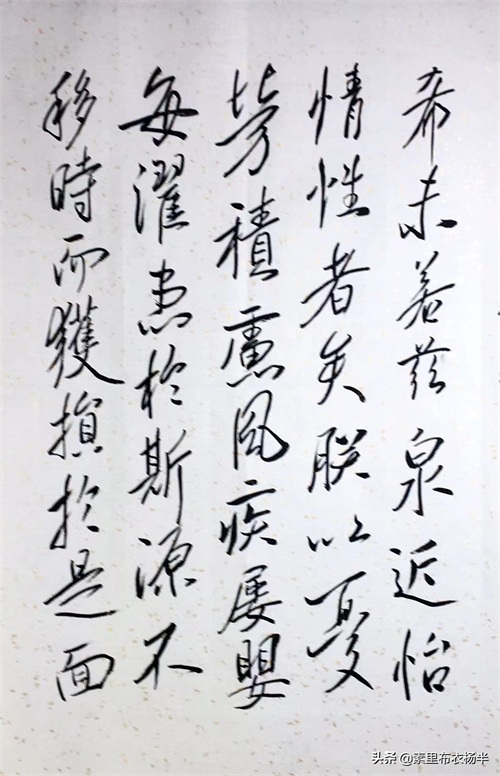 希未若茲泉近怡
情性者矣朕以憂
勞積慮風疾屢嬰
每濯患於斯源不
移時而獲損於是面
头条 @素里布衣杨半